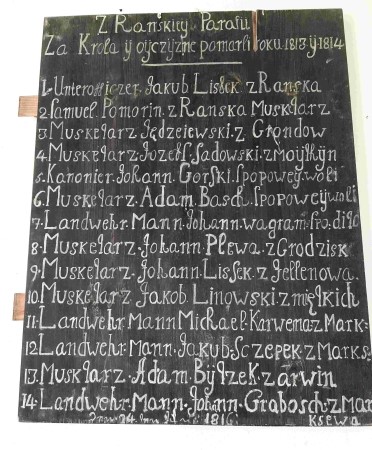 Z Ranskiey Parafii
Za Krola ij oijczijzne pomarli roku 1813 ij 1814
1. Unterofficzer Jakub Lissek z Ranska
2. Samuel Pomorin z Ranska Muskelarz
3. Muskelarz Jędzeiewski z Grondow
4. Muskelarz Jozeff Sadowski z Moijthijn
5. Kanonier Johann Gorski s popoweij woli
6. Muskelarz Adam Basch s popoweij woli
7. Landwehr Mann Johann wagram spo
8. Muskelarz Johann Plewa z Grodzisk
9. Muskelarz Johann Lissek z Jellenowa
10. Muskelarz Jakob Linowski z miętkich
11. Landwehr Mann Michael Karwema z Mark
12. Landwehr Mann Jakub Sczepek z Marks
13. Muskelarz Adam Bijtzek z arwin
14. Landwehr Mann Johann Grabosch z Mar
1816 Ksewa